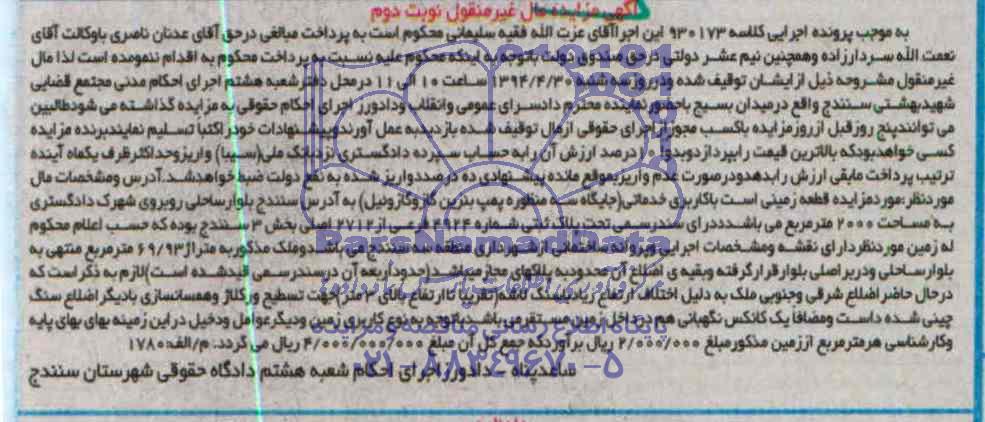 آگهی مزایده مال غیر منقول نوبت دوم
به موجب پرونده اجرایی کلاسه ۹۳۰۱۷۳ این اجرا آقای عزت الله فقیه سلیمانی محکوم است به پرداخت مبالغی درحق آقای عدنان ناصری باوکالت آقای
نعمت الله سردارزاده وهمچنین نیم عشر دولتی درحق صندوق دولت باتوجه به اینکه محکوم علیه نسبت به پرداخت محکوم به اقدام ننموده است لذا مال
غیر منقول مشروحه ذیل از ایشان توقیف شده ودرروز سه شنبه ۱۳۹۴/۴/۳۰ ساعت ۱۰ الی ۱۱ درمحل دفتر شعبه هشتم اجرای احکام مدنی مجتمع قضایی
شهیدبهشتی سنندج واقع درمیدان بسیج باحضور نماینده محترم دادسرای عمومی وانقلاب ودادورز اجرای احکام حقوقی به مزایده گذاشته می شودطالبین
می توانندپنج روزقبل ازروزمزایده باکسب مجوزازاجرای حقوقی ازمال توقیف شده بازدیدبه عمل آورندوپیشنهادات خودرا کتبا تسلیم نمایندبرنده مزایده
کسی خواهدبودکه بالاترین قیمت رابپردازدوبدوا ۱۰درصد ارزش آن رابه حساب سپرده دادگستری نزدبانک ملی(سیبا) واریزوحداکثرظرف یکماه آینده
ترتیب پرداخت مابقی ارزش رابدهدودرصورت عدم واریزبموقع مانده پیشنهادی ده درصدواریز شده به نفع دولت ضبط خواهدشد.آدرس ومشخصات مال
موردنظر:موردمزایده قطعه زمینی است باکاربری خدماتی(جایگاه سه منظوره پمپ بنزین گازوگازوئیل) به آدرس سنندج بلوارساحلی روبروی شهرک دادگستری
به مساحت ۲۰۰۰ مترمربع می باشددارای سندرسمی تحت پلاک ثبتی شماره فرعی از۲۷۱۲ اصلی بخش ۳ سنندج بوده که حسب اعلام محکوم
له زمین موردنظردارای نقشه ومشخصات اجرایی وپروانه ساختمانی ازشهرداری منطقه سه سنندج می باشدوملک مذکوربه متراژ۶۹/۹۳ مترمربع منتهی به
بلوارساحلی ودربر اصلی بلوارقرارگرفته وبقیه ی اضلاع آن محدودبه پلاکهای مجاورمیباشد(حدوداربعه آن درسندرسمی قیدشده است)لازم به ذکر است که
درحال حاضر اضلاع شرقی وجنوبی ملک به دلیل اختلاف ارتفاع زیادبیسنگ لاشه(تقریبا تاارتفاع بالای ۳ متر)جهت تسطیح ورگلاژ وهمسانسازی بادیگراضلاع سنگ
چینی شده است ومضافا یک کانکس نگهبانی هم درداخل زمین مستقرمی باشد.باتوجه به نوع کاربری زمین ودیگرعوامل ودخیل دراین زمینه بهای بهای پایه
وکارشناسی هرمترمربع اززمین مذکورمبلغ ۲/۰۰۰/۰۰۰ ریال برآوردکه جمع کل آن مبلغ ۴/۰۰۰/۰۰۰/۰۰۰ ریال می گردد. م/الف:۱۷۸۰
شاهدپناه - دادورزاجرای احکام شعبه هشتم دادگاه حقوقی شهرستان سنندج
ParsNamadData
پایگاه اطلاع رسانی مناقصه و مزایده
۰۲۱-۸۸۳۴۹۶۷۰-۵